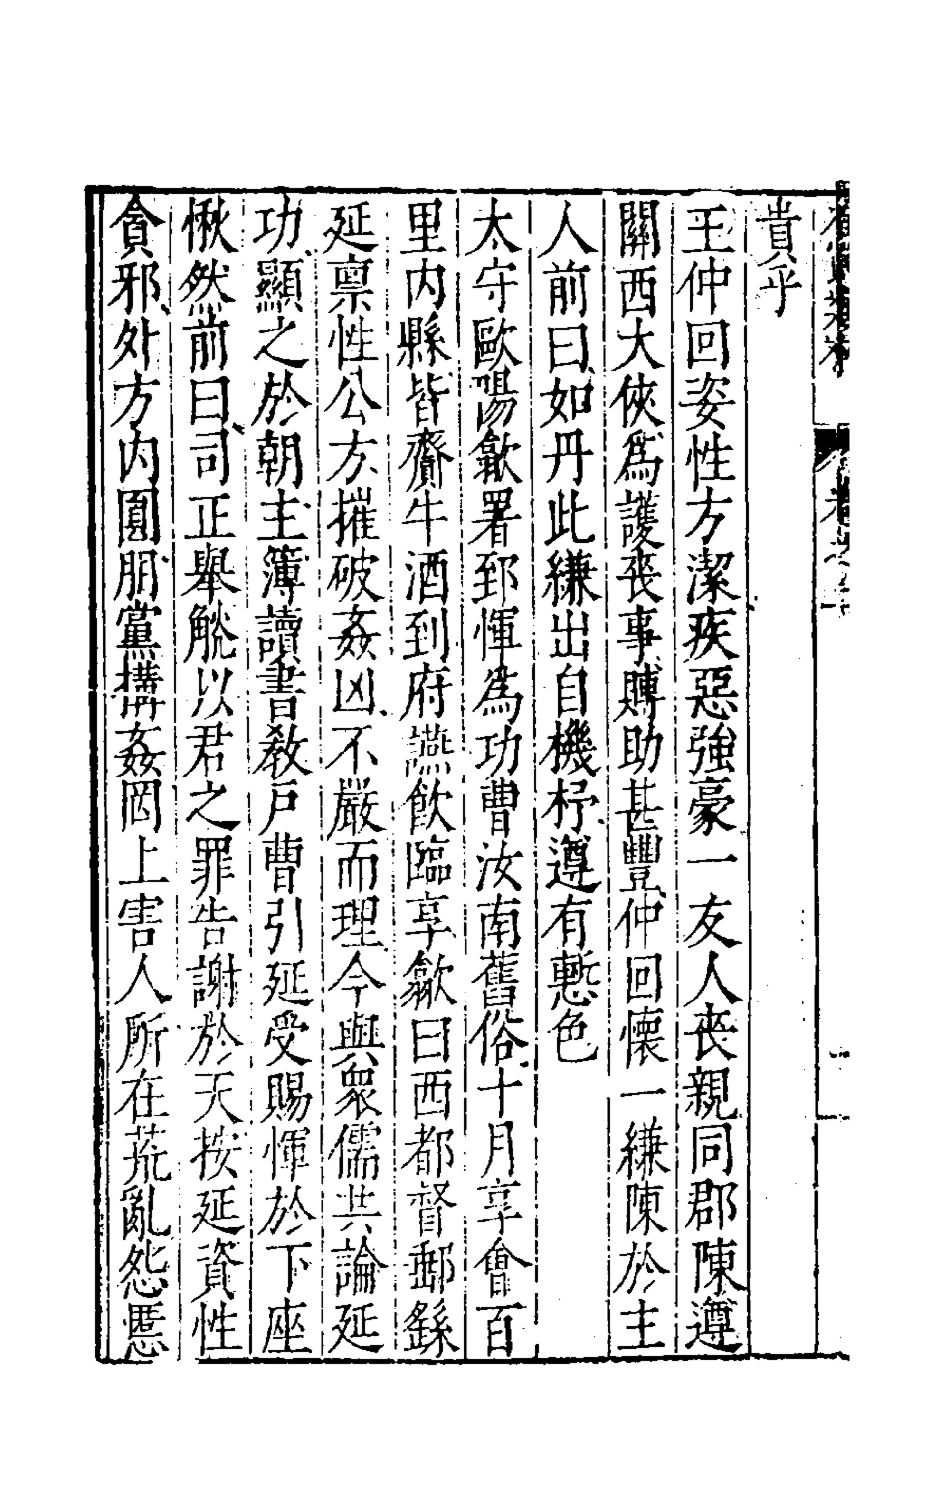 貴乎
王仲回姿性方潔疾惡強豪一友人喪親同郡陳遵
關西大俠爲護喪事賻助甚豐仲回懷一縑陳於主
人前曰如丹此縑出自機杼遵有慙色
太守歐陽歙署郅惲爲功曹汝南舊俗十月享會百
里內縣皆齎牛酒到府讌飲臨享歙曰西都督郵繇
延稟性公方摧破姦凶不嚴而理今與衆儒共論延
功顯之於朝主簿讀書教戶曹引延受賜惲於下座
愀然前曰司正舉觥以君之罪告謝於天按延資性
貪邪外方內圓朋黨搆姦罔上害人所在荒亂怨慝